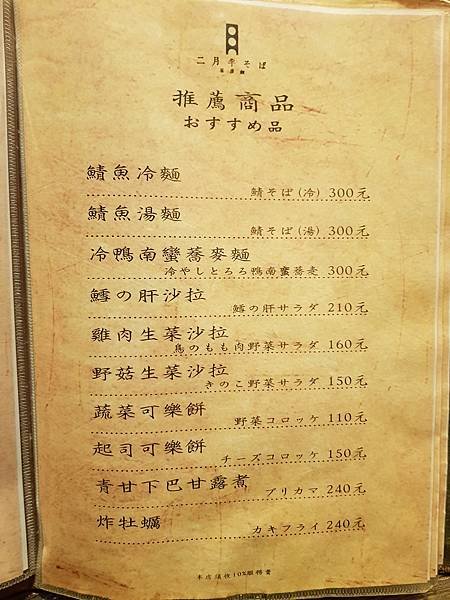 二月半そば
蕎麥麵
推薦商品
おすすめ品
鯖魚冷麵
鯖そば(冷) 300元
鯖魚湯麵
鯖そば(湯) 300元
冷鴨南蠻蕎麥麵
冷やしとろろ鴨南蛮蕎麦 300元
鱈の肝沙拉
鱈の肝サラダ 210元
雞肉生菜沙拉
鳥のもも肉野菜サラダ 160元
野菇生菜沙拉
きのこ野菜サラダ 150元
蔬菜可樂餅
野菜コロッケ 110元
起司可樂餅
チーズコロッケ 150元
青甘下巴甘露煮
ブリカマ 240元
炸牡蠣
カキフライ 240元
本店須收10%服務費